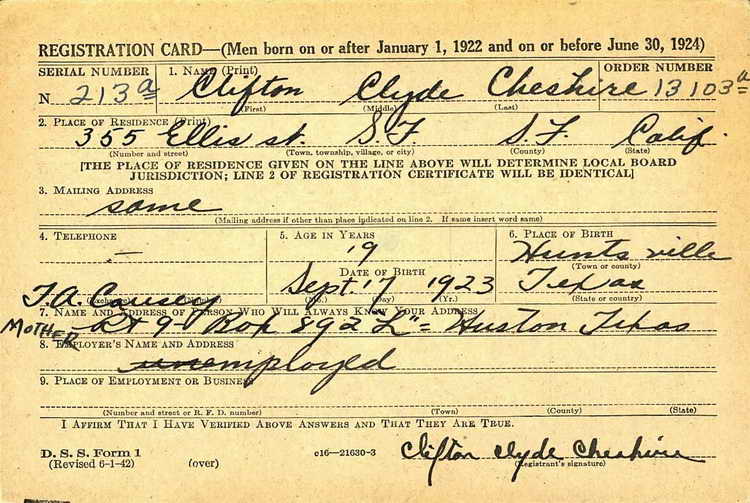 REGISTRATION CARD—(Men born on or after January 1, 1922 and on or before June 30, 1924)
SERIAL NUMBER 1. NAME (Print) ORDER NUMBER
N 213a Clifton Clyde Cheshire 13103a
(First) (Middle) (Last)
2. PLACE OF RESIDENCE (Print)
355 Ellis st. S.F. S.F. Calif.
(Number and street) (Town, township, village, or city) (County) (State)
[THE PLACE OF RESIDENCE GIVEN ON THE LINE ABOVE WILL DETERMINE LOCAL BOARD
JURISDICTION; LINE 2 OF REGISTRATION CERTIFICATE WILL BE IDENTICAL]
3. MAILING ADDRESS
same
(Mailing address if other than place indicated on line 2. If same insert word same)
4. TELEPHONE 5. AGE IN YEARS 6. PLACE OF BIRTH
— 19 Huntsville
(Town or county)
DATE OF BIRTH
Sept. 17 1923 Texas
T.A. Causey
(Exchange) (Number) (Mo.) (Day) (Yr.) (State or country)
7. NAME AND ADDRESS OF PERSON WHO WILL ALWAYS KNOW YOUR ADDRESS
MOTHER Rt 9 Box 892 Huston Texas
8. EMPLOYER'S NAME AND ADDRESS
unemployed
9. PLACE OF EMPLOYMENT OR BUSINESS
(Number and street or R. F. D. number) (Town) (County) (State)
I AFFIRM THAT I HAVE VERIFIED ABOVE ANSWERS AND THAT THEY ARE TRUE.
D. S. S. Form 1
(Revised 6-1-42) (over) c16—21630-3 Clifton Clyde Cheshire
(Registrant's signature)